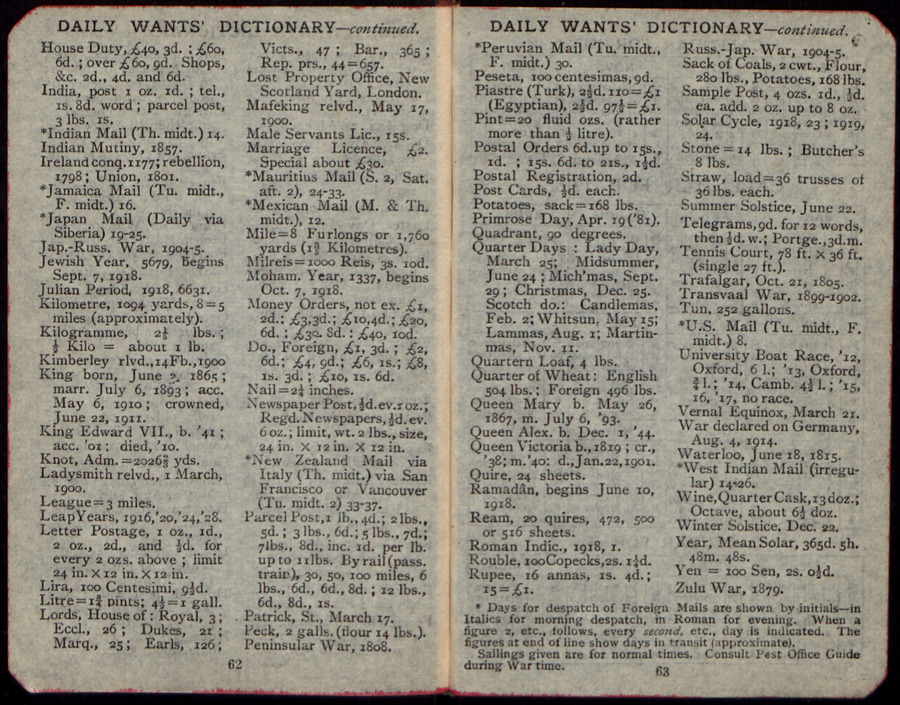 DAILY WANTS' DICTIONARY—continued.
House Duty, £40, 3d. ; £60,
6d. ; over £60, 9d. Shops,
&c. 2d., 4d. and 6d.
India, post 1 oz. 1d. ; tel.,
1s. 8d. word ; parcel post,
3 lbs. 1s.
*Indian Mail (Th. midt.) 14.
Indian Mutiny, 1857.
Ireland conq. 1177; rebellion,
1798 ; Union, 1801.
*Jamaica Mail (Tu. midt.,
F. midt.) 16.
*Japan Mail (Daily via
Siberia) 19-25.
Jap.-Russ. War, 1904-5.
Jewish Year, 5679, begins
Sept. 7, 1918.
Julian Period, 1918, 6631.
Kilometre, 1094 yards, 8=5
miles (approximately).
Kilogramme, 2⅕ lbs. ;
½ Kilo = about 1 lb.
Kimberley rlvd., 14 Fb., 1900
King born, June 3, 1865 ;
marr. July 6, 1893 ; acc.
May 6, 1910 ; crowned,
June 22, 1911.
King Edward VII., b. '41 ;
acc. '01 ; died, '10.
Knot, Adm. =2026⅔ yds.
Ladysmith relvd., 1 March,
1900.
League=3 miles.
Leap Years, 1916,'20,'24,'28.
Letter Postage, 1 oz., 1d.,
2 oz., 2d., and ½d. for
every 2 ozs. above ; limit
24 in. X 12 in. X 12 in.
Lira, 100 Centesimi, 9½d.
Litre=1¾ pints; 4½=1 gall.
Lords, House of : Royal, 3 ;
Eccl., 26 ; Dukes, 21 ;
Marq., 25 ; Earls, 126 ;
Victs., 47 ; Bar., 365 ;
Rep. prs., 44=657.
Lost Property Office, New
Scotland Yard, London.
Mafeking relvd., May 17,
1900.
Male Servants Lic., 15s.
Marriage Licence, £2.
Special about £30.
*Mauritius Mail (S. 2, Sat.
aft. 2), 24-33.
*Mexican Mail (M. & Th.
midt.), 12.
Mile=8 Furlongs or 1,760
yards (1⅗ Kilometres).
Milreis=1000 Reis, 3s. 10d.
Moham. Year, 1337, begins
Oct. 7, 1918.
Money Orders, not ex. £1,
2d. ; £3, 3d. ; £10, 4d. ; £20,
6d. ; £30 8d. ; £40, 10d.
Do., Foreign, £1, 3d. ; £2,
6d. ; £4, 9d. ; £6, 1s. ; £8,
1s. 3d. ; £10, 1s. 6d.
Nail=2¼ inches.
Newspaper Post, ½d. ev. 1 oz. ;
Regd. Newspapers, ½d. ev.
6 oz. ; limit, wt. 2 lbs., size,
24 in. X 12 in. X 12 in.
*New Zealand Mail via
Italy (Th. midt.) via San
Francisco or Vancouver
(Tu. midt. 2) 33-37.
Parcel Post, 1 lb., 4d. ; 2 lbs.,
5d. ; 3 lbs., 6d. ; 5 lbs., 7d. ;
7 lbs., 8d., inc. 1d. per lb.
up to 11 lbs. By rail (pass.
train), 30, 50, 100 miles, 6
lbs., 6d., 6d., 8d. ; 12 lbs.,
6d., 8d., 1s.
Patrick, St., March 17.
Peck, 2 galls. (flour 14 lbs.).
Peninsular War, 1808.
62
DAILY WANTS' DICTIONARY—continued.
*Peruvian Mail (Tu. midt.,
F. midt.) 30.
Peseta, 100 centesimas, 9d.
Piastre (Turk), 2½d. 110=£1
(Egyptian), 2½d. 97½=£1.
Pint=20 fluid ozs. (rather
more than ½ litre).
Postal Orders 6d. up to 15s.,
1d. ; 15s. 6d. to 21s., 1½d.
Postal Registration, 2d.
Post Cards, ½d. each.
Potatoes, sack=168 lbs.
Primrose Day, Apr. 19 ('81).
Quadrant, 90 degrees.
Quarter Days : Lady Day,
March 25; Midsummer,
June 24 ; Mich'mas, Sept.
29 ; Christmas, Dec. 25.
Scotch do.: Candlemas,
Feb. 2; Whitsun, May 15;
Lammas, Aug. 1; Martin-
mas, Nov. 11.
Quartern Loaf, 4 lbs.
Quarter of Wheat : English
504 lbs. ; Foreign 496 lbs.
Queen Mary b. May 26,
1867, m. July 6, '93.
Queen Alex. b. Dec. 1, '44.
Queen Victoria b., 1819 ; cr.,
'38; m. '40: d., Jan. 22, 1901.
Quire, 24 sheets.
Ramadân, begins June 10,
1918.
Ream, 20 quires, 472, 500
or 516 sheets.
Roman Indic., 1918, 1.
Rouble, 100 Copecks, 2s. 1¼d.
Rupee, 16 annas, 1s. 4d. ;
15=£1.
Russ.-Jap. War, 1904-5.
Sack of Coals, 2 cwt., Flour,
280 lbs., Potatoes, 168 lbs.
Sample Post, 4 ozs. 1d., ½d.
ea. add. 2 oz. up to 8 oz.
Solar Cycle, 1918, 23 ; 1919,
24.
Stone=14 lbs. ; Butcher's
8 lbs.
Straw, load=36 trusses of
36 lbs. each.
Summer Solstice, June 22.
Telegrams, 9d. for 12 words,
then ½d. w. ; Portge., 3d. m.
Tennis Court, 78 ft. X 36 ft.
(single 27 ft.).
Trafalgar, Oct. 21, 1805.
Transvaal War, 1899-1902.
Tun, 252 gallons.
*U.S. Mail (Tu. midt., F.
midt.) 8.
University Boat Race, '12,
Oxford, 6 l. ; '13, Oxford,
¾ l. ; '14, Camb. 4½ l. ; '15,
16, '17, no race.
Vernal Equinox, March 21.
War declared on Germany,
Aug. 4, 1914.
Waterloo, June 18, 1815.
*West Indian Mail (irregu-
lar) 14-26.
Wine, Quarter Cask, 13 doz. ;
Octave, about 6½ doz.
Winter Solstice, Dec. 22.
Year, Mean Solar, 365d. 5h.
48m. 48s.
Yen = 100 Sen, 2s. 0½d.
Zulu War, 1879.
* Days for despatch of Foreign Mails are shown by initials—in
Italics for morning despatch, in Roman for evening. When a
figure 2, etc., follows, every second, etc., day is indicated. The
figures at end of line show days in transit (approximate).
Sailings given are for normal times. Consult Post Office Guide
during War time.
63